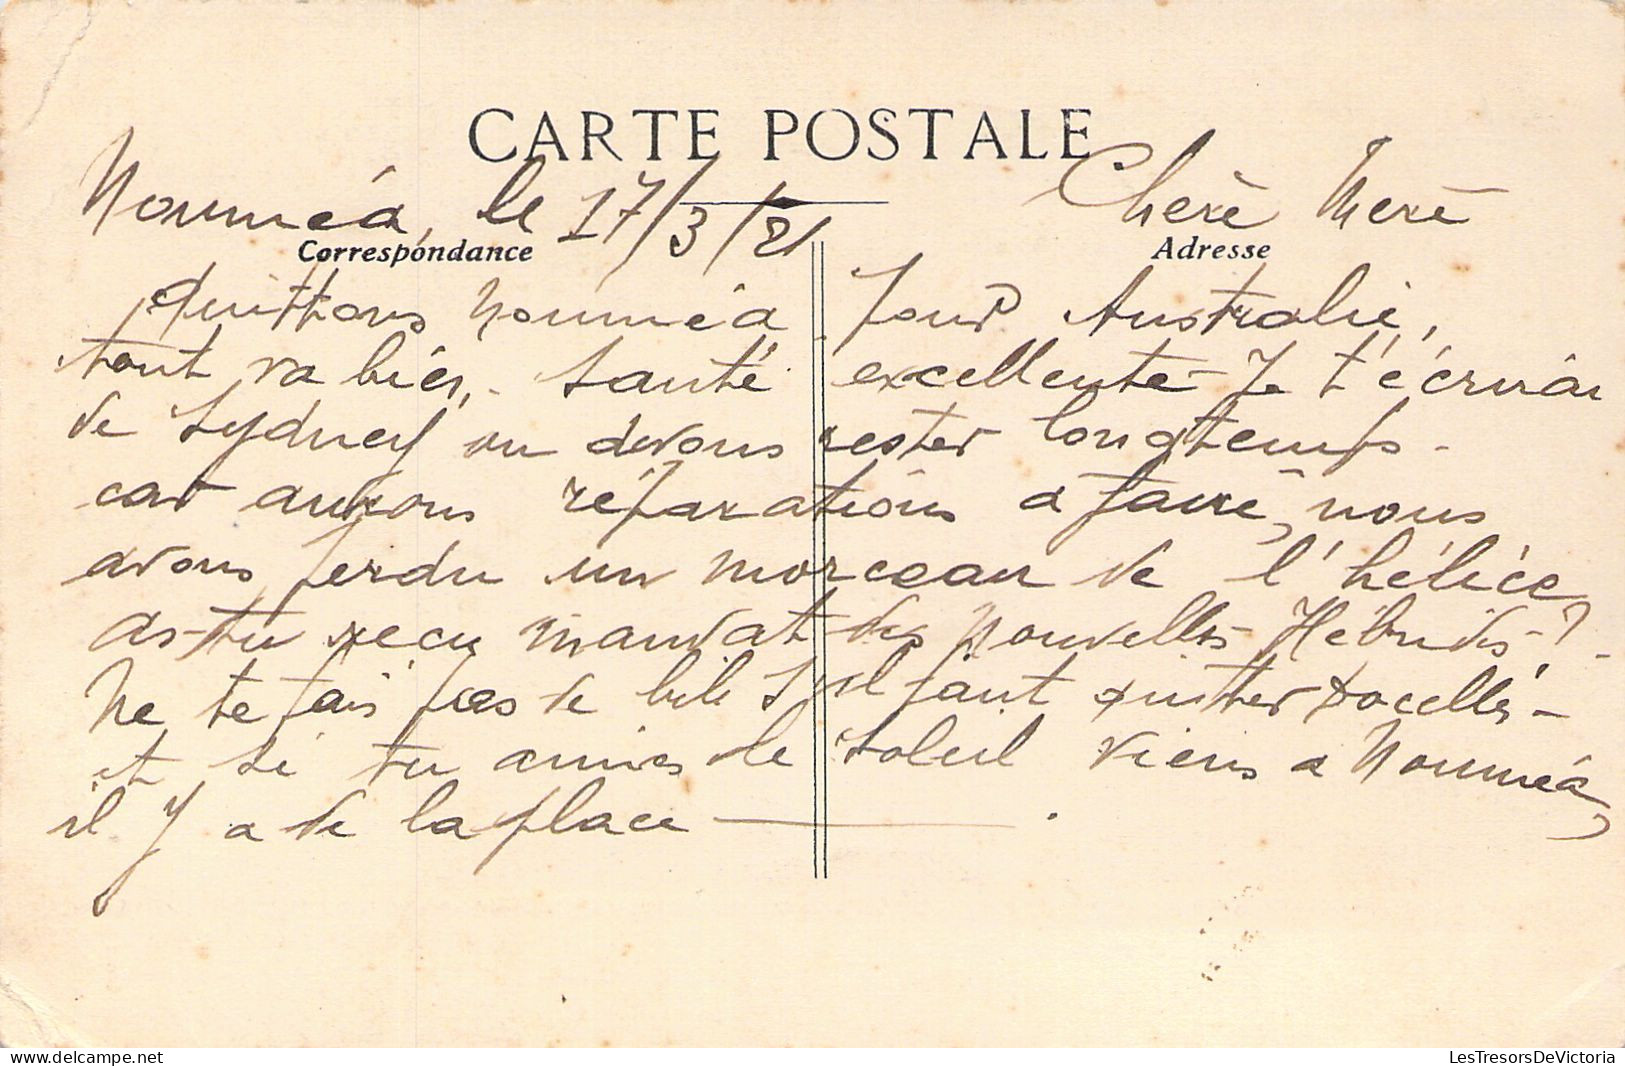 CARTE POSTALE
Nouméa, le 17/3/21 Chère Mère
Correspondance Adresse
Quittons Nouméa pour Australie,
tout va bien. Santé excellente - Je t'écrirai
de Sydney ou devons rester longtemps -
car aurons réparations a faire, nous
avons perdu un morceau de l'hélice
as-tu reçu mandat des Nouvelles Hébrides ?
Ne te fais pas de bile s'il faut quitter -
et si tu aimes le soleil viens a Nouméa,
il y a de la place
LesTresorsDeVictoria.com
LesTresorsDeVictoria